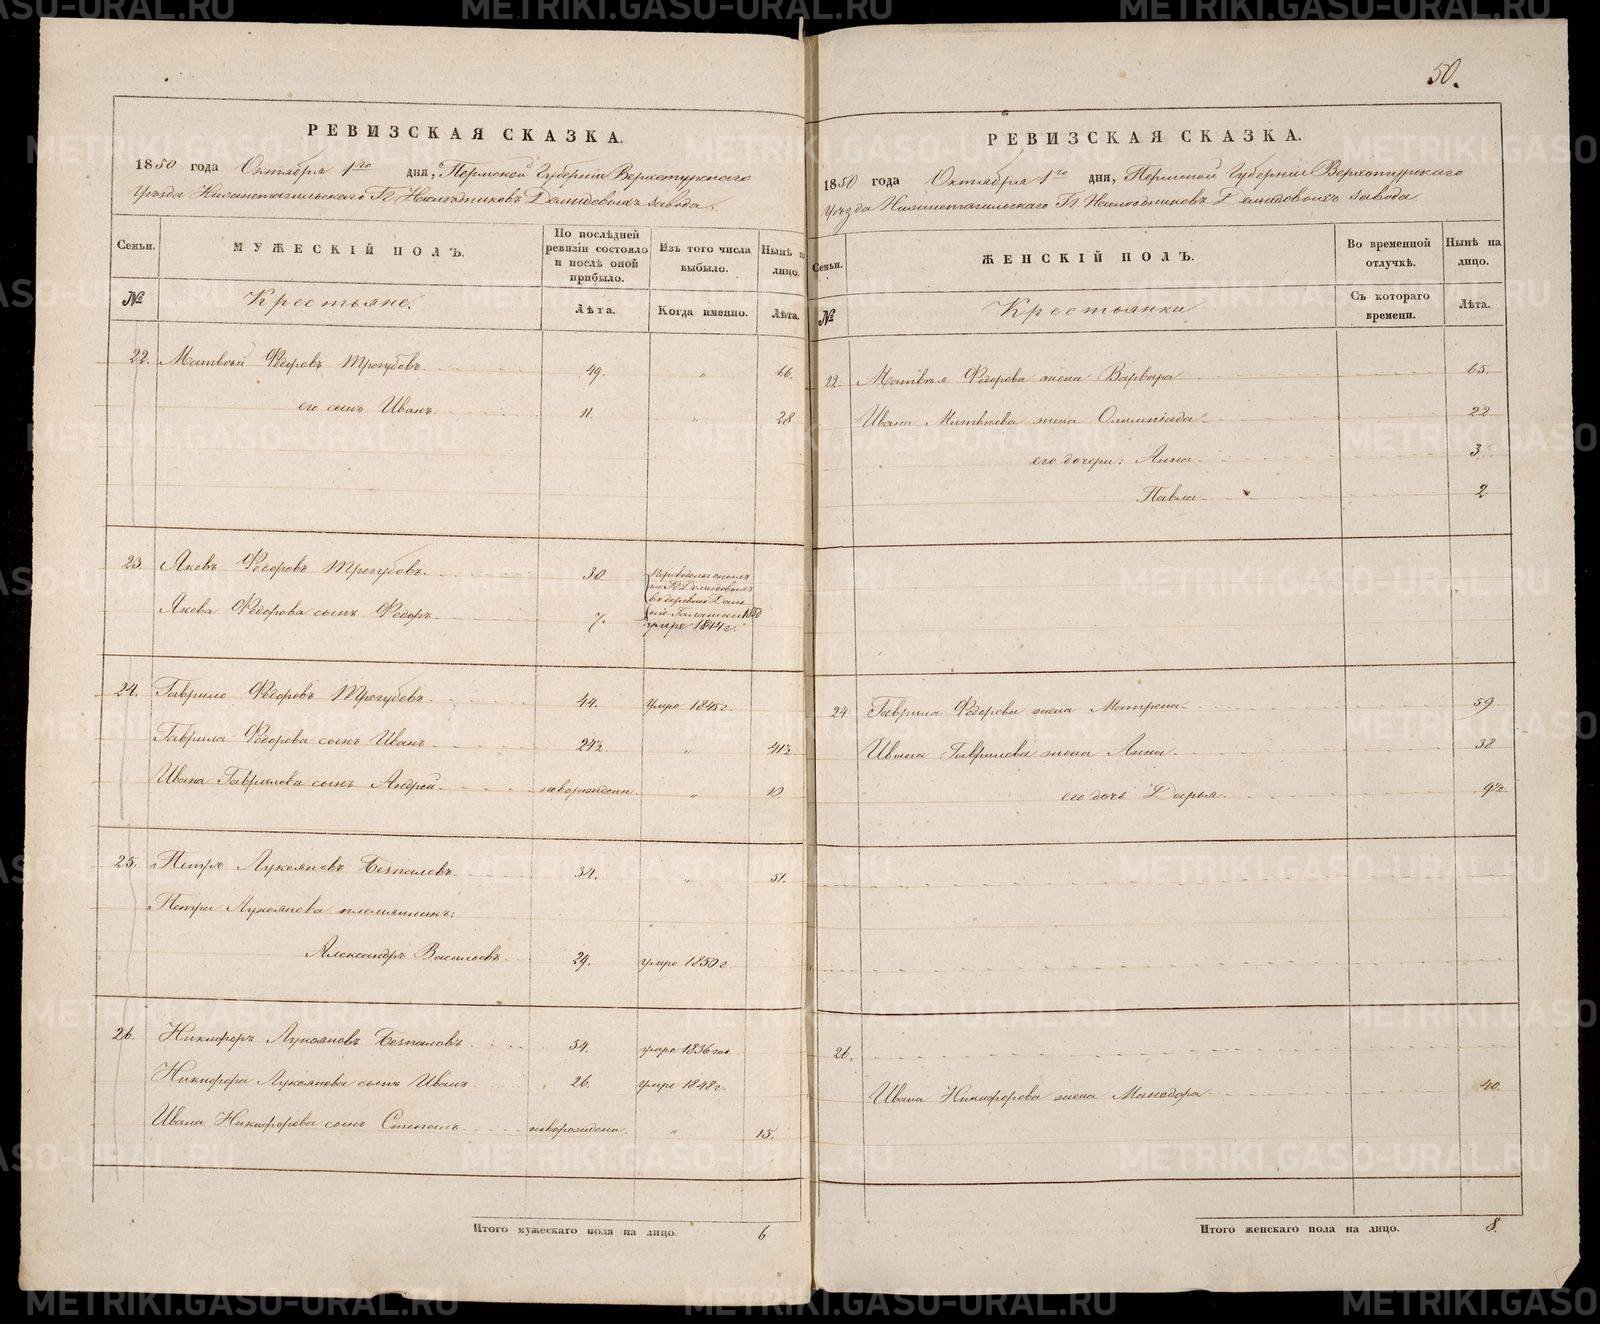 50.
РЕВИЗСКАЯ СКАЗКА.
1850 года Октября 1го дня, Пермской Губерніи Верхотурскаго
Уѣзда Нижнетагильскаго Гг. Наслѣдниковъ Демидовыхъ завода.
Семьи. МУЖЕСКІЙ ПОЛЪ. По послѣдней ревизіи состояло и послѣ оной прибыло. Изъ того числа выбыло. Нынѣ на лицо.
№ Крестьяне. Лѣта. Когда именно. Лѣта.
22. Матвѣй Федоровъ Трегубовъ 49. " 66.
его сынъ Иванъ 11. " 28
23. Яковъ Федоровъ Трегубовъ 30.
въ деревню
1850
Якова Федорова сынъ Федоръ 7. умре 1844 г.
24. Гаврило Федоровъ Трегубовъ 44. умре 1845 г.
Гаврила Федорова сынъ Иванъ 24½ " 41½
Ивана Гаврилова сынъ Андрей новорожден. " 12
25. Петръ Лукояновъ Безпаловъ 34. " 51.
Петра Лукоянова племянникъ:
Александръ Васильевъ 29. умре 1850 г.
26. Никифоръ Лукояновъ Безпаловъ 54. умре 1836 год
Никифора Лукоянова сынъ Иванъ 26. умре 1848 г.
Ивана Никифорова сынъ Степанъ новорожден. " 15.
Итого мужескаго пола на лицо. 6
РЕВИЗСКАЯ СКАЗКА.
1850 года Октября 1го дня, Пермской Губерніи Верхотурскаго
Уѣзда Нижнетагильскаго Гг. Наслѣдниковъ Демидовыхъ завода.
Семьи. ЖЕНСКІЙ ПОЛЪ. Во временной отлучкѣ. Нынѣ на лицо.
№ Крестьянки Съ котораго времени. Лѣта.
22. Матвѣя Федорова жена Варвара 65.
Ивана Матвѣева жена Олимпіада 22
его дочери: Анна 3
Павла 2
24 Гаврила Федорова жена Матрена 59
Ивана Гаврилова жена Анна 38
его дочь Дарья 9½
26.
Ивана Никифорова жена Минодора 40.
Итого женскаго пола на лицо. 8.
METRIKI.GASO-URAL.RU